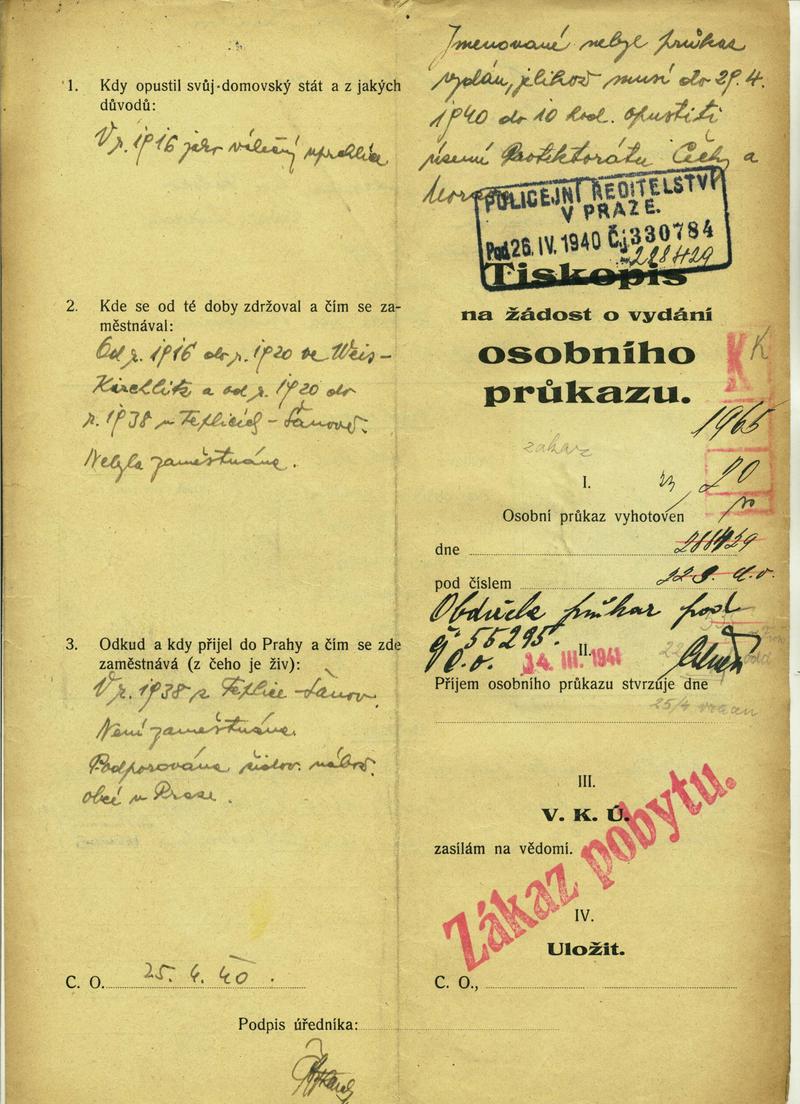 1. Kdy opustil svůj domovský stát a z jakých
důvodů:
V r. 1916 jako válečný uprchlice
2. Kde se od té doby zdržoval a čím se za-
městnával:
Od r. 1916 do r. 1920 ve Weis-
Kirchlitz a od r. 1920 do
r. 1938 v Teplicích-Šanově.
Nebyla zaměstnána.
3. Odkud a kdy přijel do Prahy a čím se zde
zaměstnává (z čeho je živ):
V r. 1938 z Teplice-Šanov.
Není zaměstnána.
Podporována židov. nábož.
obcí v Praze.
C. O. 25. 4. 40.
Podpis úředníka:
Jmenované nebyl průkaz
vydán, jelikož musí do 29. 4.
1940 do 10 hod. opustiti
území Protektorátu Čechy a
POLICEJNÍ ŘEDITELSTVÍ
V PRAZE.
Pod 26. IV. 1940 Čj 330784
228429
Tiskopis
na žádost o vydání
osobního
průkazu.
K K
1965
zákaz
I.
20
Osobní průkaz vyhotoven
dne
pod číslem
Obdržela průkaz pod
č. 55295.
II.
14. III. 1941
Příjem osobního průkazu stvrzuje dne
25/4
III.
V. K. Ú.
zasílám na vědomí.
Zákaz pobytu.
IV.
Uložit.
C. O.,